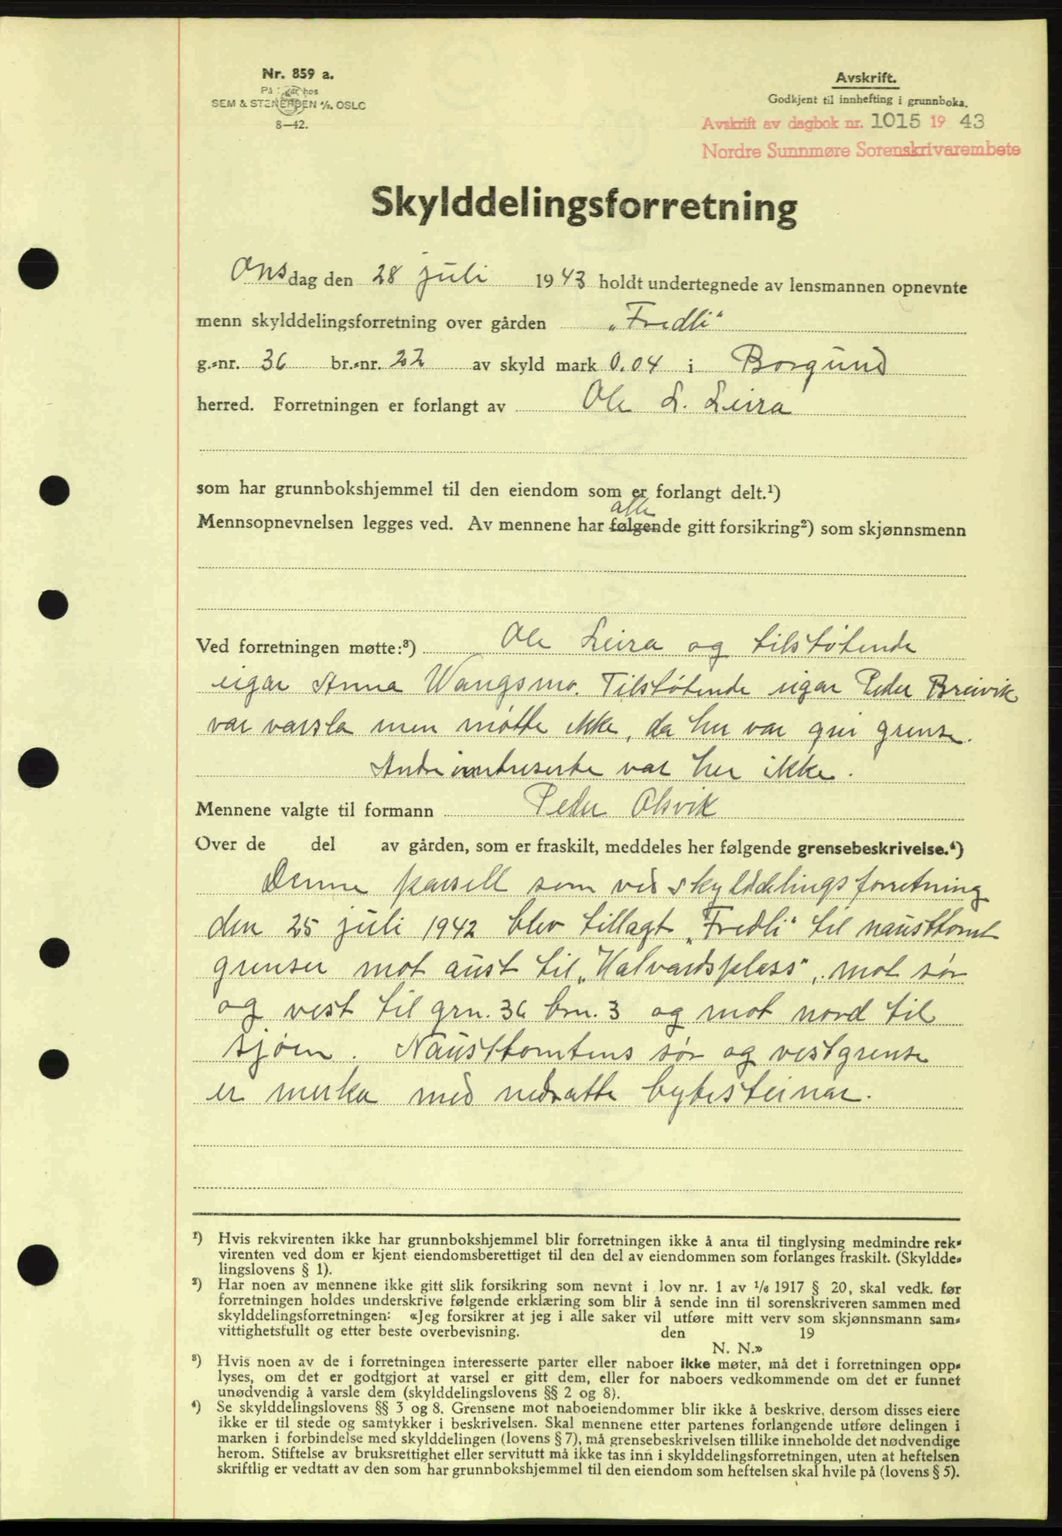 Nr. 859 a.
På lager hos
SEM & STENERSEN A/S, OSLO
8—42.
Avskrift.
Godkjent til innhefting i grunnboka.
Avskrift av dagbok nr. 1015 19 43
Nordre Sunnmøre Sorenskrivarembete
Skylddelingsforretning
Onsdag den 28 juli 1943 holdt undertegnede av lensmannen opnevnte
menn skylddelingsforretning over gården „Fredli“
g.-nr. 36 br.-nr. 22 av skyld mark 0.04 i Borgund
herred. Forretningen er forlangt av Ole L. Leira
som har grunnbokshjemmel til den eiendom som er forlangt delt.¹)
alle
Mennsopnevnelsen legges ved. Av mennene har følgende gitt forsikring²) som skjønnsmenn
Ved forretningen møtte:³) Ole Leira og tilstøtende
eigar Anna Wangsmo. Tilstøtende eigar Peder Breivik
var varsla men møtte ikke, da her var grei grense.
Andre intreserte var her ikke.
Mennene valgte til formann Peder Olsvik
Over de del av gården, som er fraskilt, meddeles her følgende grensebeskrivelse.⁴)
Denne parsell som ved skylddelingsforretning
den 25 juli 1942 blev tillagt „Fredli“ til nausttomt
grenser mot aust til „Halvardsplass“, mot sør
og vest til grn. 36 brn. 3 og mot nord til
sjøen. Nausttomtens sør og vestgrense
er merka med nedsatte bytesteinar.
¹) Hvis rekvirenten ikke har grunnbokshjemmel blir forretningen ikke å anta til tinglysing medmindre rek-
virenten ved dom er kjent eiendomsberettiget til den del av eiendommen som forlanges fraskilt. (Skyldde-
lingslovens § 1).
²) Har noen av mennene ikke gitt slik forsikring som nevnt i lov nr. 1 av 1/6 1917 § 20, skal vedk. før
forretningen holdes underskrive følgende erklæring som blir å sende inn til sorenskriveren sammen med
skylddelingsforretningen: «Jeg forsikrer at jeg i alle saker vil utføre mitt verv som skjønnsmann sam-
vittighetsfullt og etter beste overbevisning. den 19
N. N.»
³) Hvis noen av de i forretningen interesserte parter eller naboer ikke møter, må det i forretningen opp-
lyses, om det er godtgjort at varsel er gitt dem, eller for naboers vedkommende om det er funnet
unødvendig å varsle dem (skylddelingslovens §§ 2 og 8).
⁴) Se skylddelingslovens §§ 3 og 8. Grensene mot naboeiendommer blir ikke å beskrive, dersom disses eiere
ikke er til stede og samtykker i beskrivelsen. Skal mennene etter partenes forlangende utføre delingen i
marken i forbindelse med skylddelingen (lovens § 7), må grensebeskrivelsen tillike inneholde det nødvendige
herom. Stiftelse av bruksrettighet eller servitutt må ikke tas inn i skylddelingsforretningen, uten at heftelsen
skriftlig er vedtatt av den som har grunnbokshjemmel til den eiendom som heftelsen skal hvile på (lovens § 5).